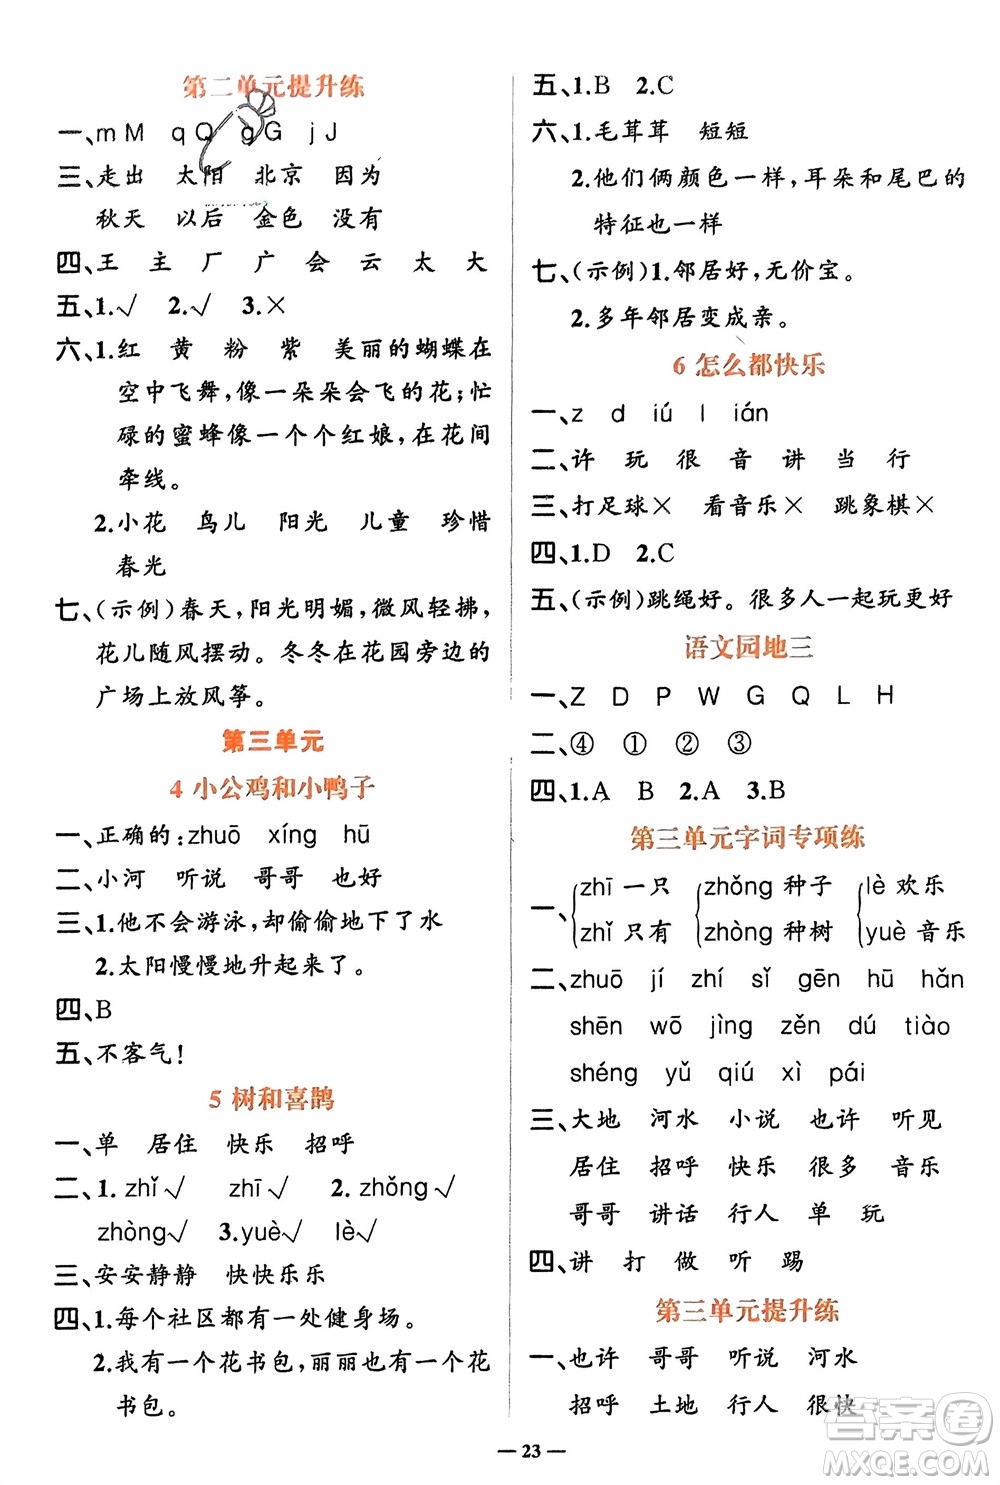 第二单元提升练
一、m M q Q g G j J
三、走出 太阳 北京 因为
秋天 以后 金色 没有
四、王 主 厂 广 会 云 太 大
五、1.√ 2.√ 3.×
六、1.红 黄 粉 紫 美丽的蝴蝶在
空中飞舞,像一朵朵会飞的花;忙
碌的蜜蜂像一个个红娘,在花间
牵线。
2.小花 鸟儿 阳光 儿童 珍惜
春光
七、(示例)春天,阳光明媚,微风轻拂,
花儿随风摆动。冬冬在花园旁边的
广场上放风筝。
第三单元
4 小公鸡和小鸭子
一、正确的:zhuō xíng hū
二、小河 听说 哥哥 也好
三、1.他不会游泳,却偷偷地下了水
2.太阳慢慢地升起来了。
四、B
五、不客气!
5 树和喜鹊
一、单 居住 快乐 招呼
二、1.zhǐ√ zhī√ 2.zhǒng√
zhòng√ 3.yuè√ lè√
三、安安静静 快快乐乐
四、1.每个社区都有一处健身场。
2.我有一个花书包,丽丽也有一个花
书包。
五、1.B 2.C
六、1.毛茸茸 短短
2.他们俩颜色一样,耳朵和尾巴的
特征也一样
七、(示例)1.邻居好,无价宝。
2.多年邻居变成亲。
6 怎么都快乐
一、z d iú l ián
二、许 玩 很 音 讲 当 行
三、打足球× 看音乐× 跳象棋×
四、1.D 2.C
五、(示例)跳绳好。很多人一起玩更好
语文园地三
一、Z D P W G Q L H
二、④ ① ② ③
四、1.A B 2.A 3.B
第三单元字词专项练
一、zhī 一只 zhǒng 种子 lè 欢乐
zhǐ 只有 zhòng 种树 yuè 音乐
二、zhuō jí zhí sǐ gēn hū hǎn
shēn wō jìng zěn dú tiào
shéng yǔ qiú xì pái
三、大地 河水 小说 也许 听见
居住 招呼 快乐 很多 音乐
哥哥 讲话 行人 单 玩
四、讲 打 做 听 踢
第三单元提升练
一、也许 哥哥 听说 河水
招呼 土地 行人 很快
— 23 —
答案圈
MXQE.COM